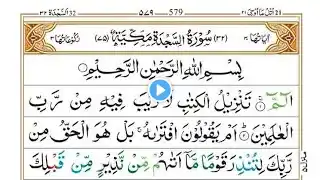 السجدة ٣٢ ٥٧٩ 579 اتل مآ اوحى ٢١
اٰيَاتُهَا ٣٠ (٣٢) سُوْرَةُ السَّجْدَةِ مَكِّيَّةٌ (٧٥) رُكُوْعَاتُهَا ٣
بِسْمِ اللّٰهِ الرَّحْمٰنِ الرَّحِيْمِ
الٓمّٓ ۚ تَنْزِيْلُ الْكِتٰبِ لَا رَيْبَ فِيْهِ مِنْ رَّبِّ
الْعٰلَمِيْنَ ؕ اَمْ يَقُوْلُوْنَ افْتَرٰىهُ ۚ بَلْ هُوَ الْحَقُّ مِنْ
رَّبِّكَ لِتُنْذِرَ قَوْمًا مَّاۤ اَتٰىهُمْ مِّنْ نَّذِيْرٍ مِّنْ قَبْلِكَ